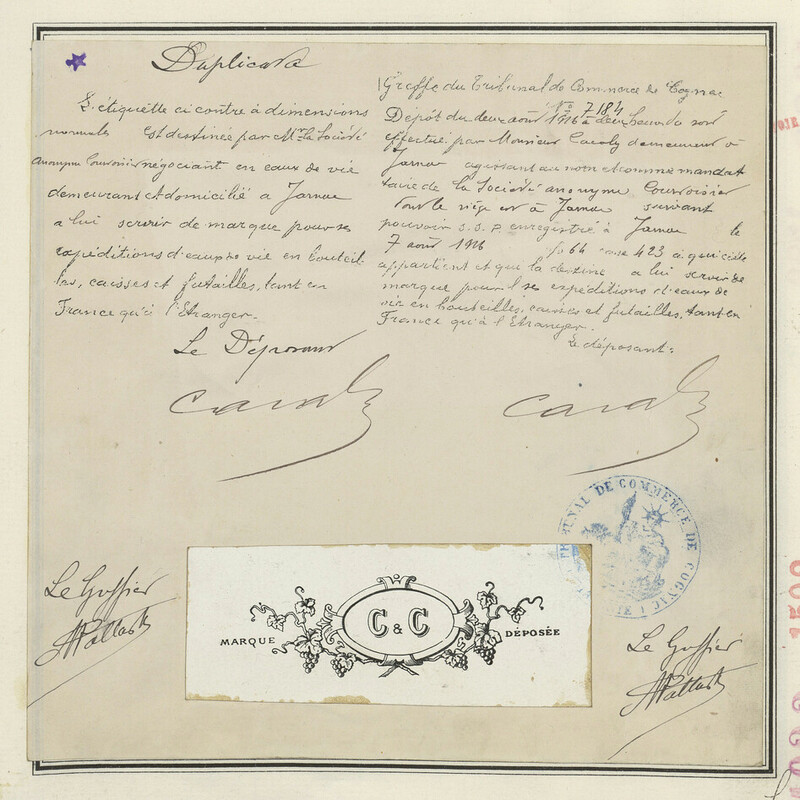 Duplicata
L'étiquette ci contre à dimensions
normales est destinée par Mr la Société
Anonyme Courvoisier négociant en eaux de vie
demeurant et domicilié à Jarnac
a lui servir de marque pour ses
expéditions d'eaux de vie en bouteil
les, caisses et futailles, tant en
France qu'à l'Etranger.
Le Déposant
Greffe du Tribunal de Commerce de Cognac
No 7184
Dépôt du deux août 1916 à deux heures du soir
effectué par Monsieur demeurant à
Jarnac agissant au nom et comme mandat
taire de la Société anonyme Courvoisier
dont le siège est à Jarnac suivant
pouvoir S.S.P. enregistré à Jarnac le
7 août 1916 fo 64 case 423 à qui elle
appartient et que la destine a lui servir de
marque pour ses expéditions d'eaux de
vie en bouteilles, caisses et futailles, tant en
France qu'à l'Etranger.
Le déposant:
TRIBUNAL DE COMMERCE DE COGNAC
MARQUE C & C DÉPOSÉE
Le Greffier
Le Greffier
1500